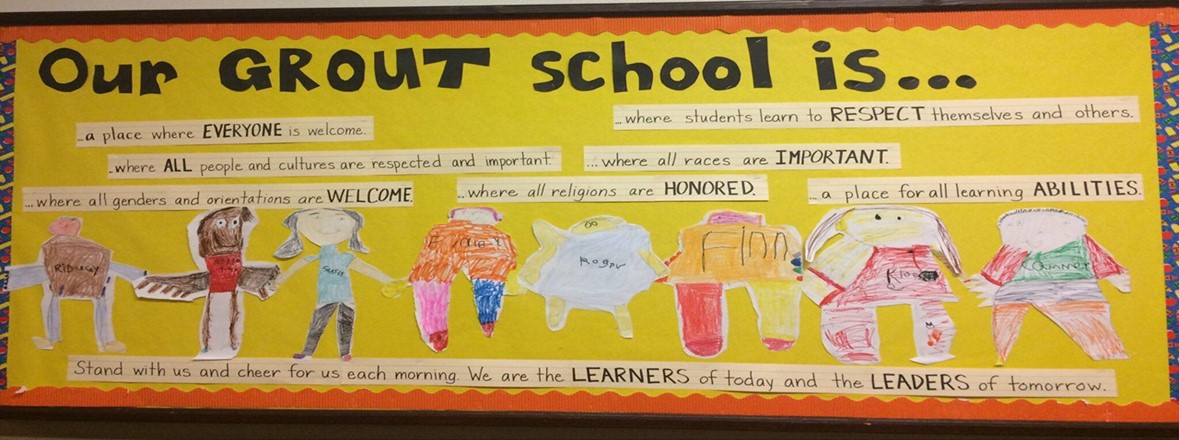 Our GROUT school is...
...a place where EVERYONE is welcome.
...where students learn to RESPECT themselves and others.
...where ALL people and cultures are respected and important.
...where all races are IMPORTANT.
...where all genders and orientations are WELCOME.
...where all religions are HONORED.
...a place for all learning ABILITIES.
Finn
Stand with us and cheer for us each morning. We are the LEARNERS of today and the LEADERS of tomorrow.